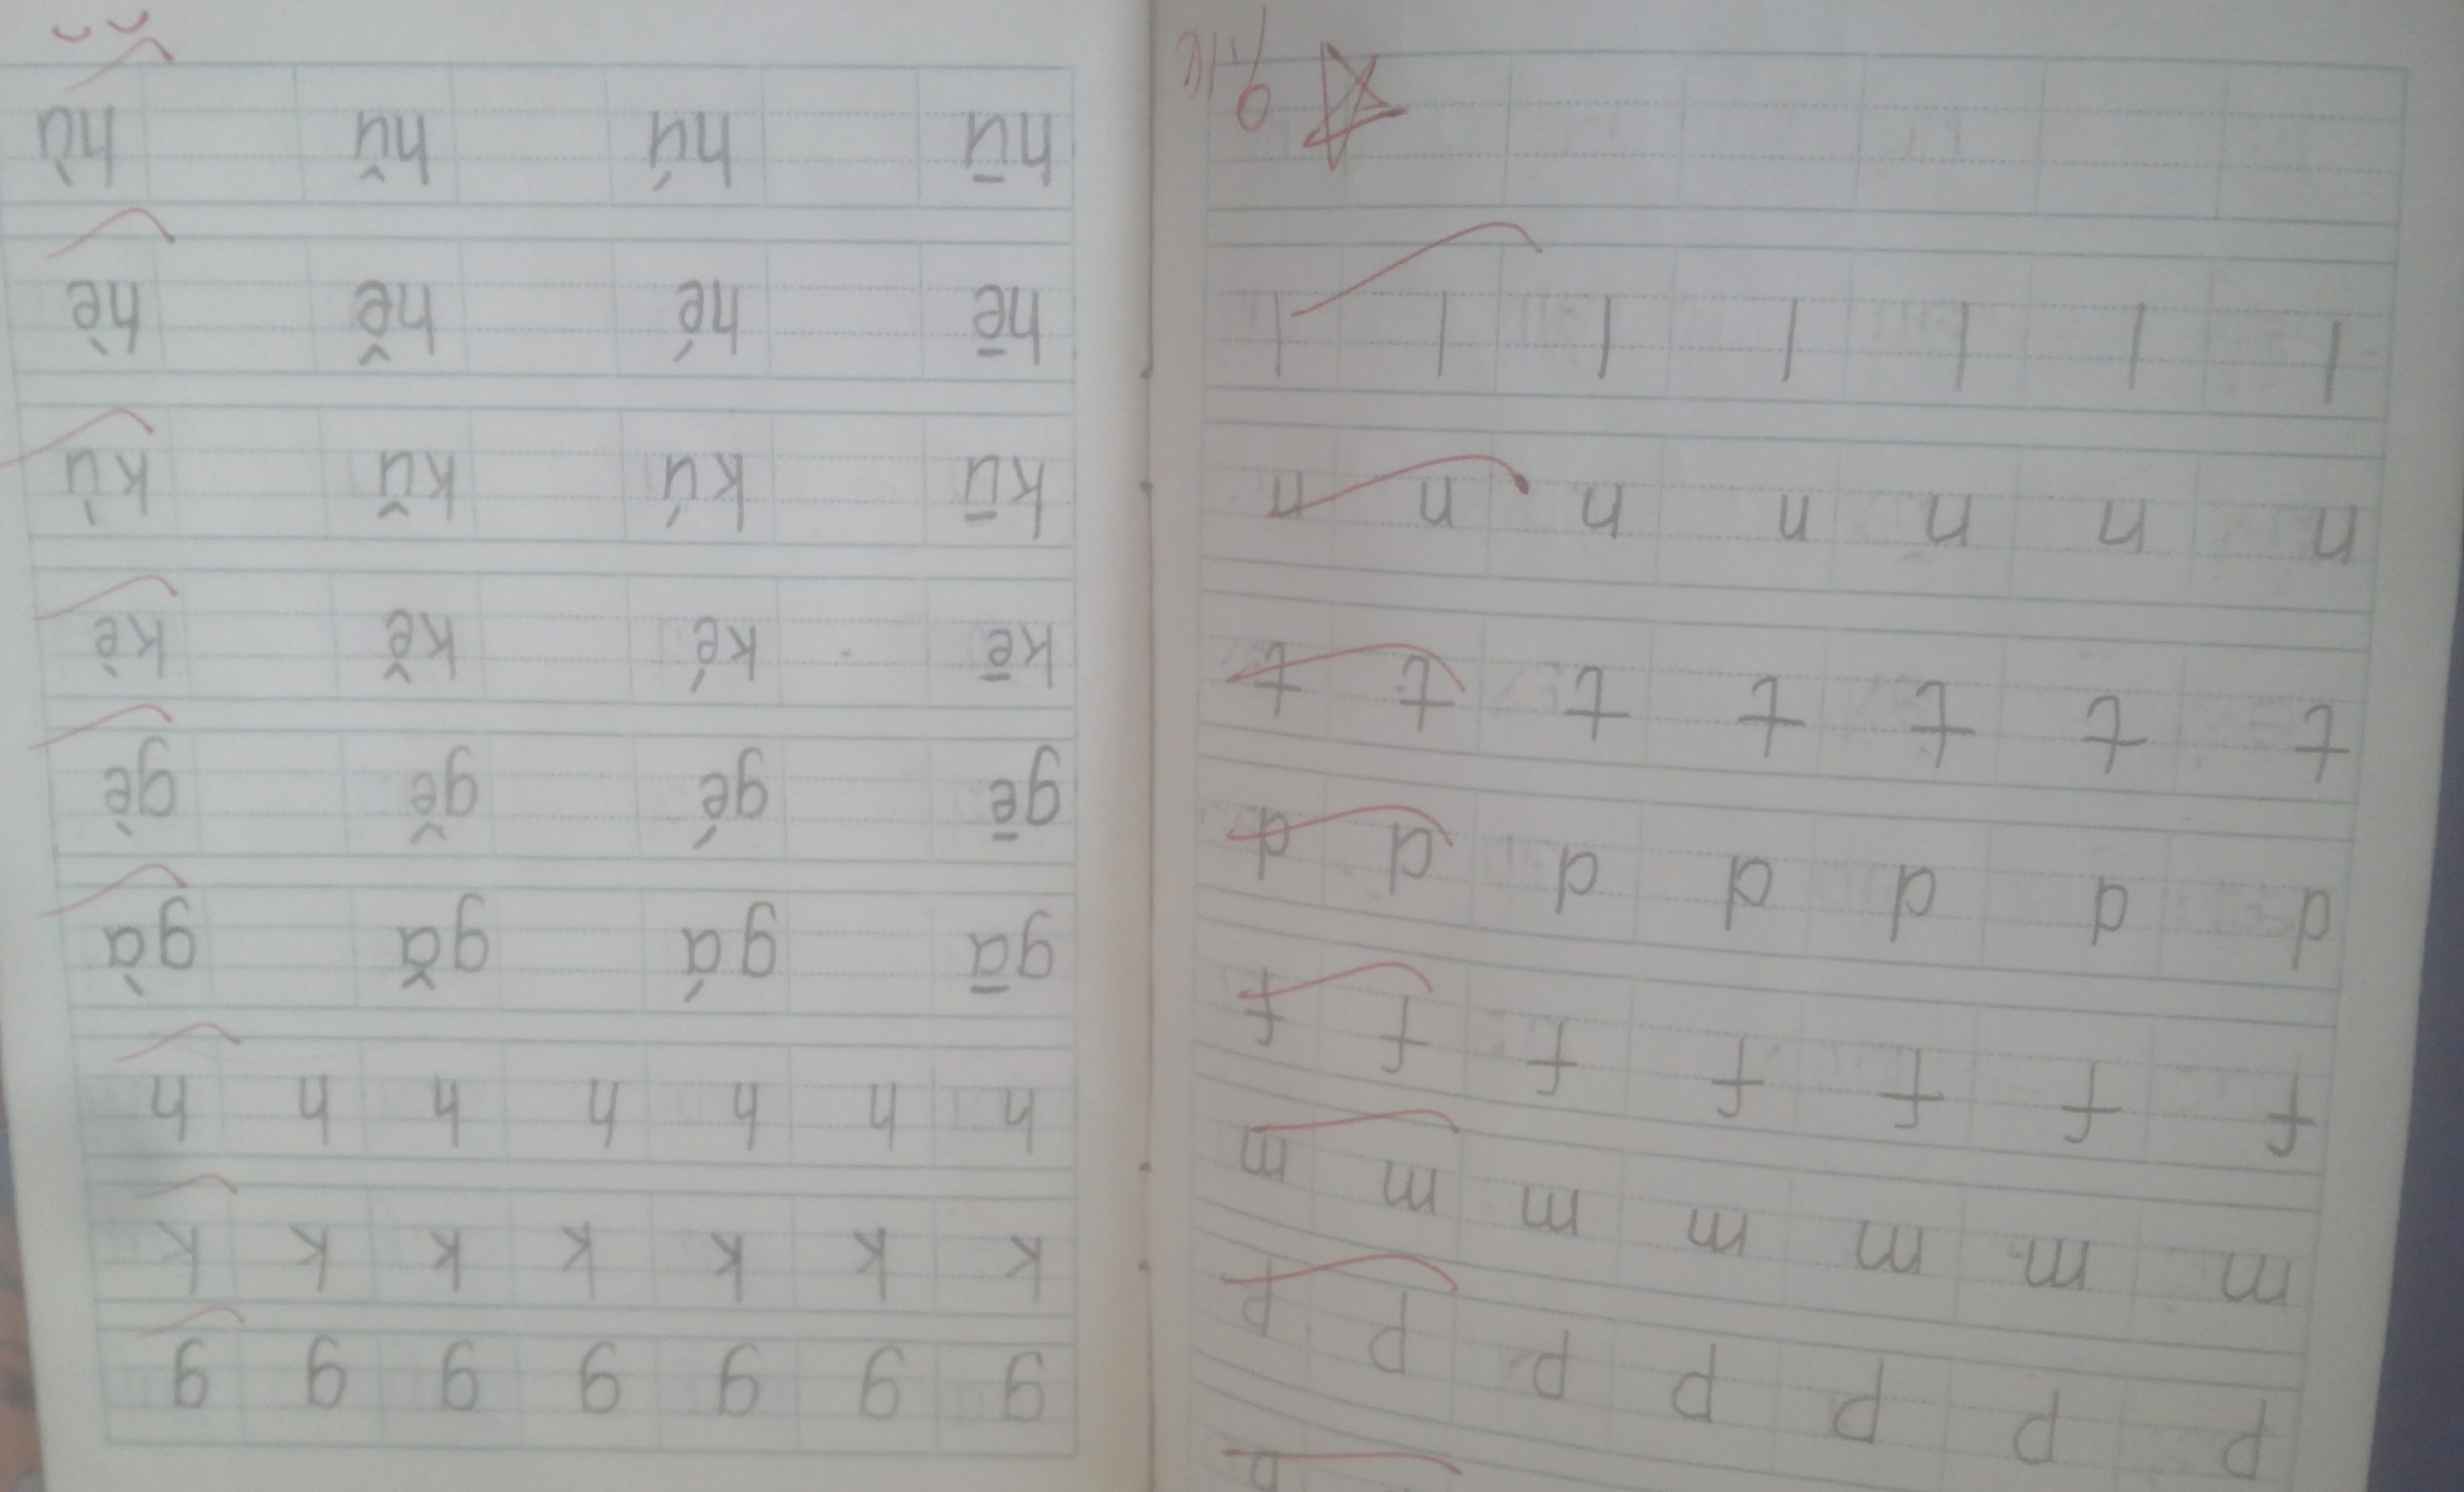 p p p p p p p
m m m m m m m
f f f f f f f
d d d d d d d
t t t t t t t
n n n n n n n
l l l l l l l
g g g g g g g
k k k k k k k
h h h h h h h
gā gá gǎ gà
gē gé gě gè
kē ké kě kè
kū kú kǔ kù
hē hé hě hè
hū hú hǔ hù